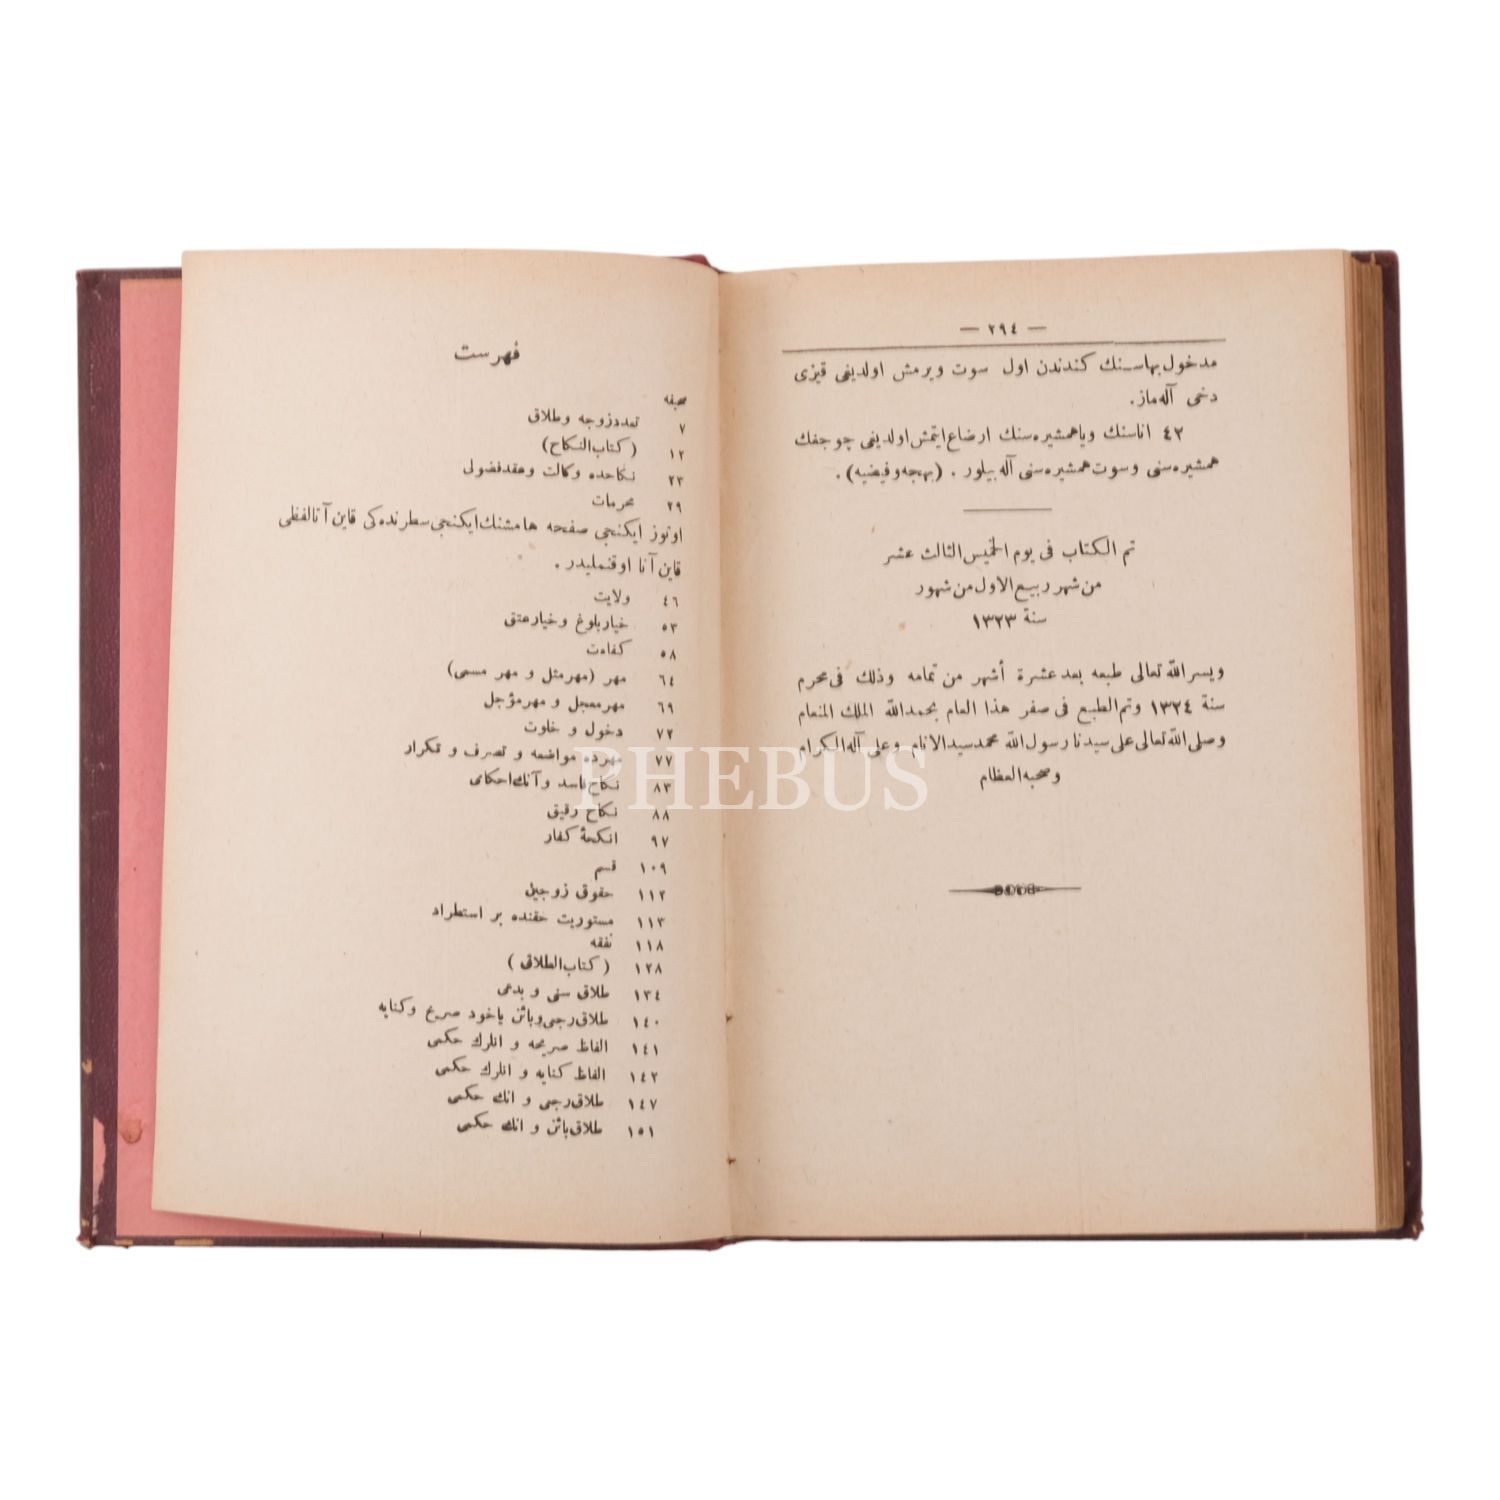 — ٢٩٤ —
مدخول بهاسنك كندندن اول سوت ويرمش اولديغى قيزى
دخى آله‌ماز.
٤٢ اناسنك ويا همشيره‌سنك ارضاع ايتمش اولديغى چوجغك
همشيره‌سنى وسوت همشيره‌سنى آله بيلور . (بهجه وفيضيه) .
تم الكتاب فى يوم الخميس الثالث عشر
من شهر ربيع الاول من شهور
سنة ١٣٢٣
ويسر الله تعالى طبعه بعد عشرة أشهر من تمامه وذلك فى محرم
سنة ١٣٢٤ وتم الطبع فى صفر هذا العام بحمد الله الملك المنعام
وصلى الله تعالى على سيدنا رسول الله محمد سيد الانام وعلى آله الكرام
وصحبه العظام
فهرست
صحيفه
٧ تعدد زوجه وطلاق
١٢ (كتاب النكاح)
٢٣ نكاحده وكالت وعقد فضولى
٢٩ محرمات
اوتوز ايكنجى صفحه هامشنك ايكنجى سطرنده كى قاين آتا لفظى
قاين آنا اوقنمليدر .
٤٦ ولايت
٥٣ خيار بلوغ وخيار عتق
٥٨ كفاءت
٦٤ مهر (مهر مثل و مهر مسمى)
٦٩ مهر معجل و مهر مؤجل
٧٢ دخول و خلوت
٧٧ مهرده مواضعه و تصرف و تكرار
٨٣ نكاح فاسد و آنك احكامى
٨٨ نكاح رقيق
٩٧ انكحهٔ كفار
١٠٩ قسم
١١٢ حقوق زوجين
١١٣ مستوريت حقنده بر استطراد
١١٨ نفقه
١٢٨ (كتاب الطلاق)
١٣٤ طلاق سنى و بدعى
١٤٠ طلاق رجعى وبائن ياخود صريح وكنايه
١٤١ الفاظ صريحه و انلرك حكمى
١٤٢ الفاظ كنايه و انلرك حكمى
١٤٧ طلاق رجعى و انك حكمى
١٥١ طلاق بائن و انك حكمى
PHEBUS